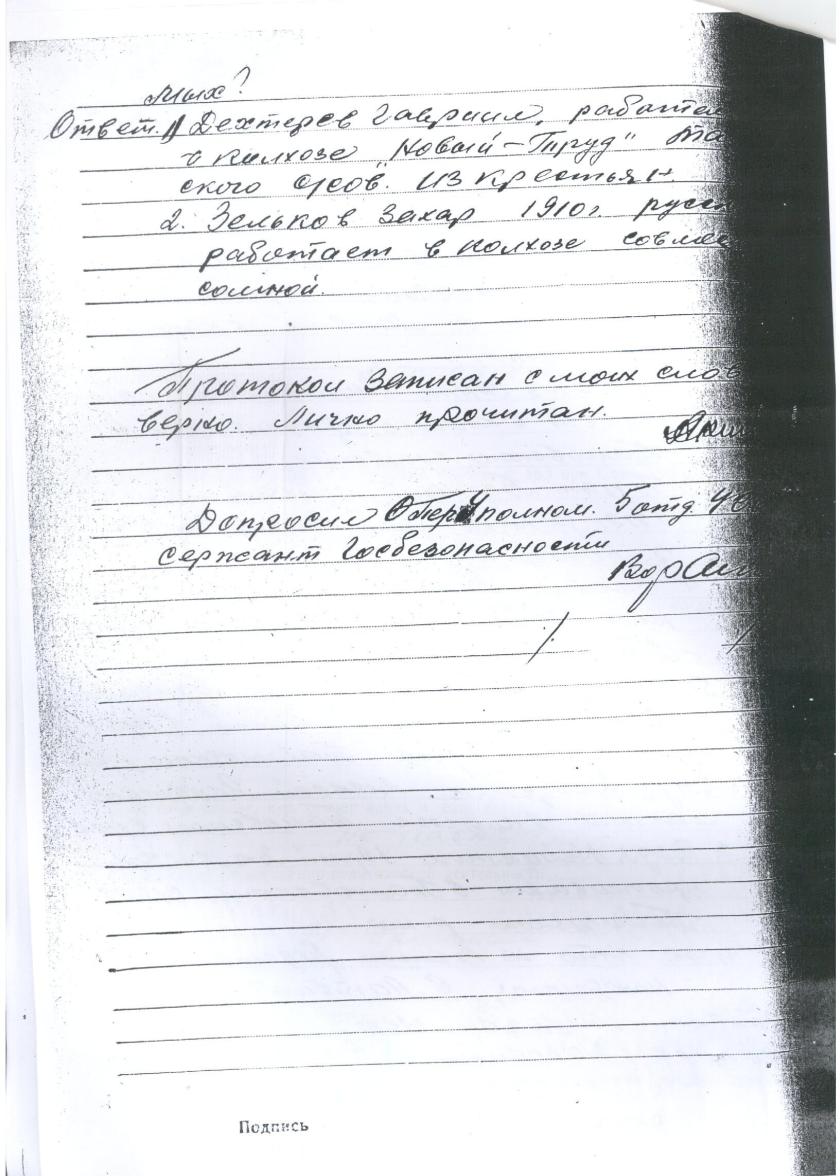 мых?
Ответ. 1 Дехтерев Гавриил, работа
в колхозе "Новый-Труд" Та
ского с/сов. из крестьян
2. Зельков Захар 1910г. русс
работает в колхозе совмес
сомной.
Протокол записан с моих слов
верно. Лично прочитан.
Допросил Оперуполном. 5 отд
сержант Госбезопасности
Подпись